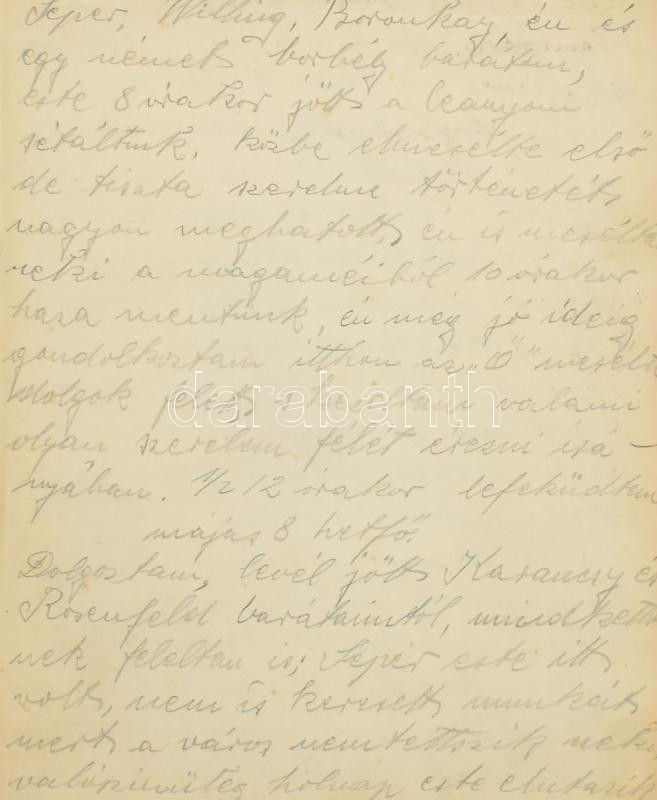 Seper, Willing, Boronkay, én és
egy német borbély barátim,
este 8 órakor jött a leányom
sétáltunk, közbe elmesélte első
de tiszta szerelme történetét
nagyon meghatott, én is meséltem
neki a magaméiból 10 órakor
haza mentünk, én még jó ideig
gondolkoztam itthon az "Ő" mesélt
dolgok felett s kezdtem valami
olyan szerelem félét érezni irá-
nyában. 1/2 12 órakor lefeküdtem
május 8 hetfő.
Dolgoztam, levél jött Karancsy és
Rosenfeld barátaimtól, mindkettő
nek feleltem is; Seper este itt
volt, nem is keresett munkát
mert a város nem tettszik neki
valószinüleg holnap este elutazik
darabanth